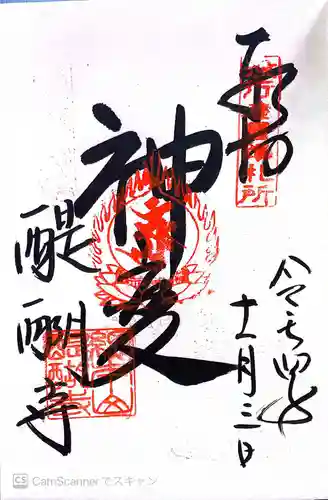 奉拝
令和四年
十一月三日
神変
醍醐寺
CS CamScannerでスキャン